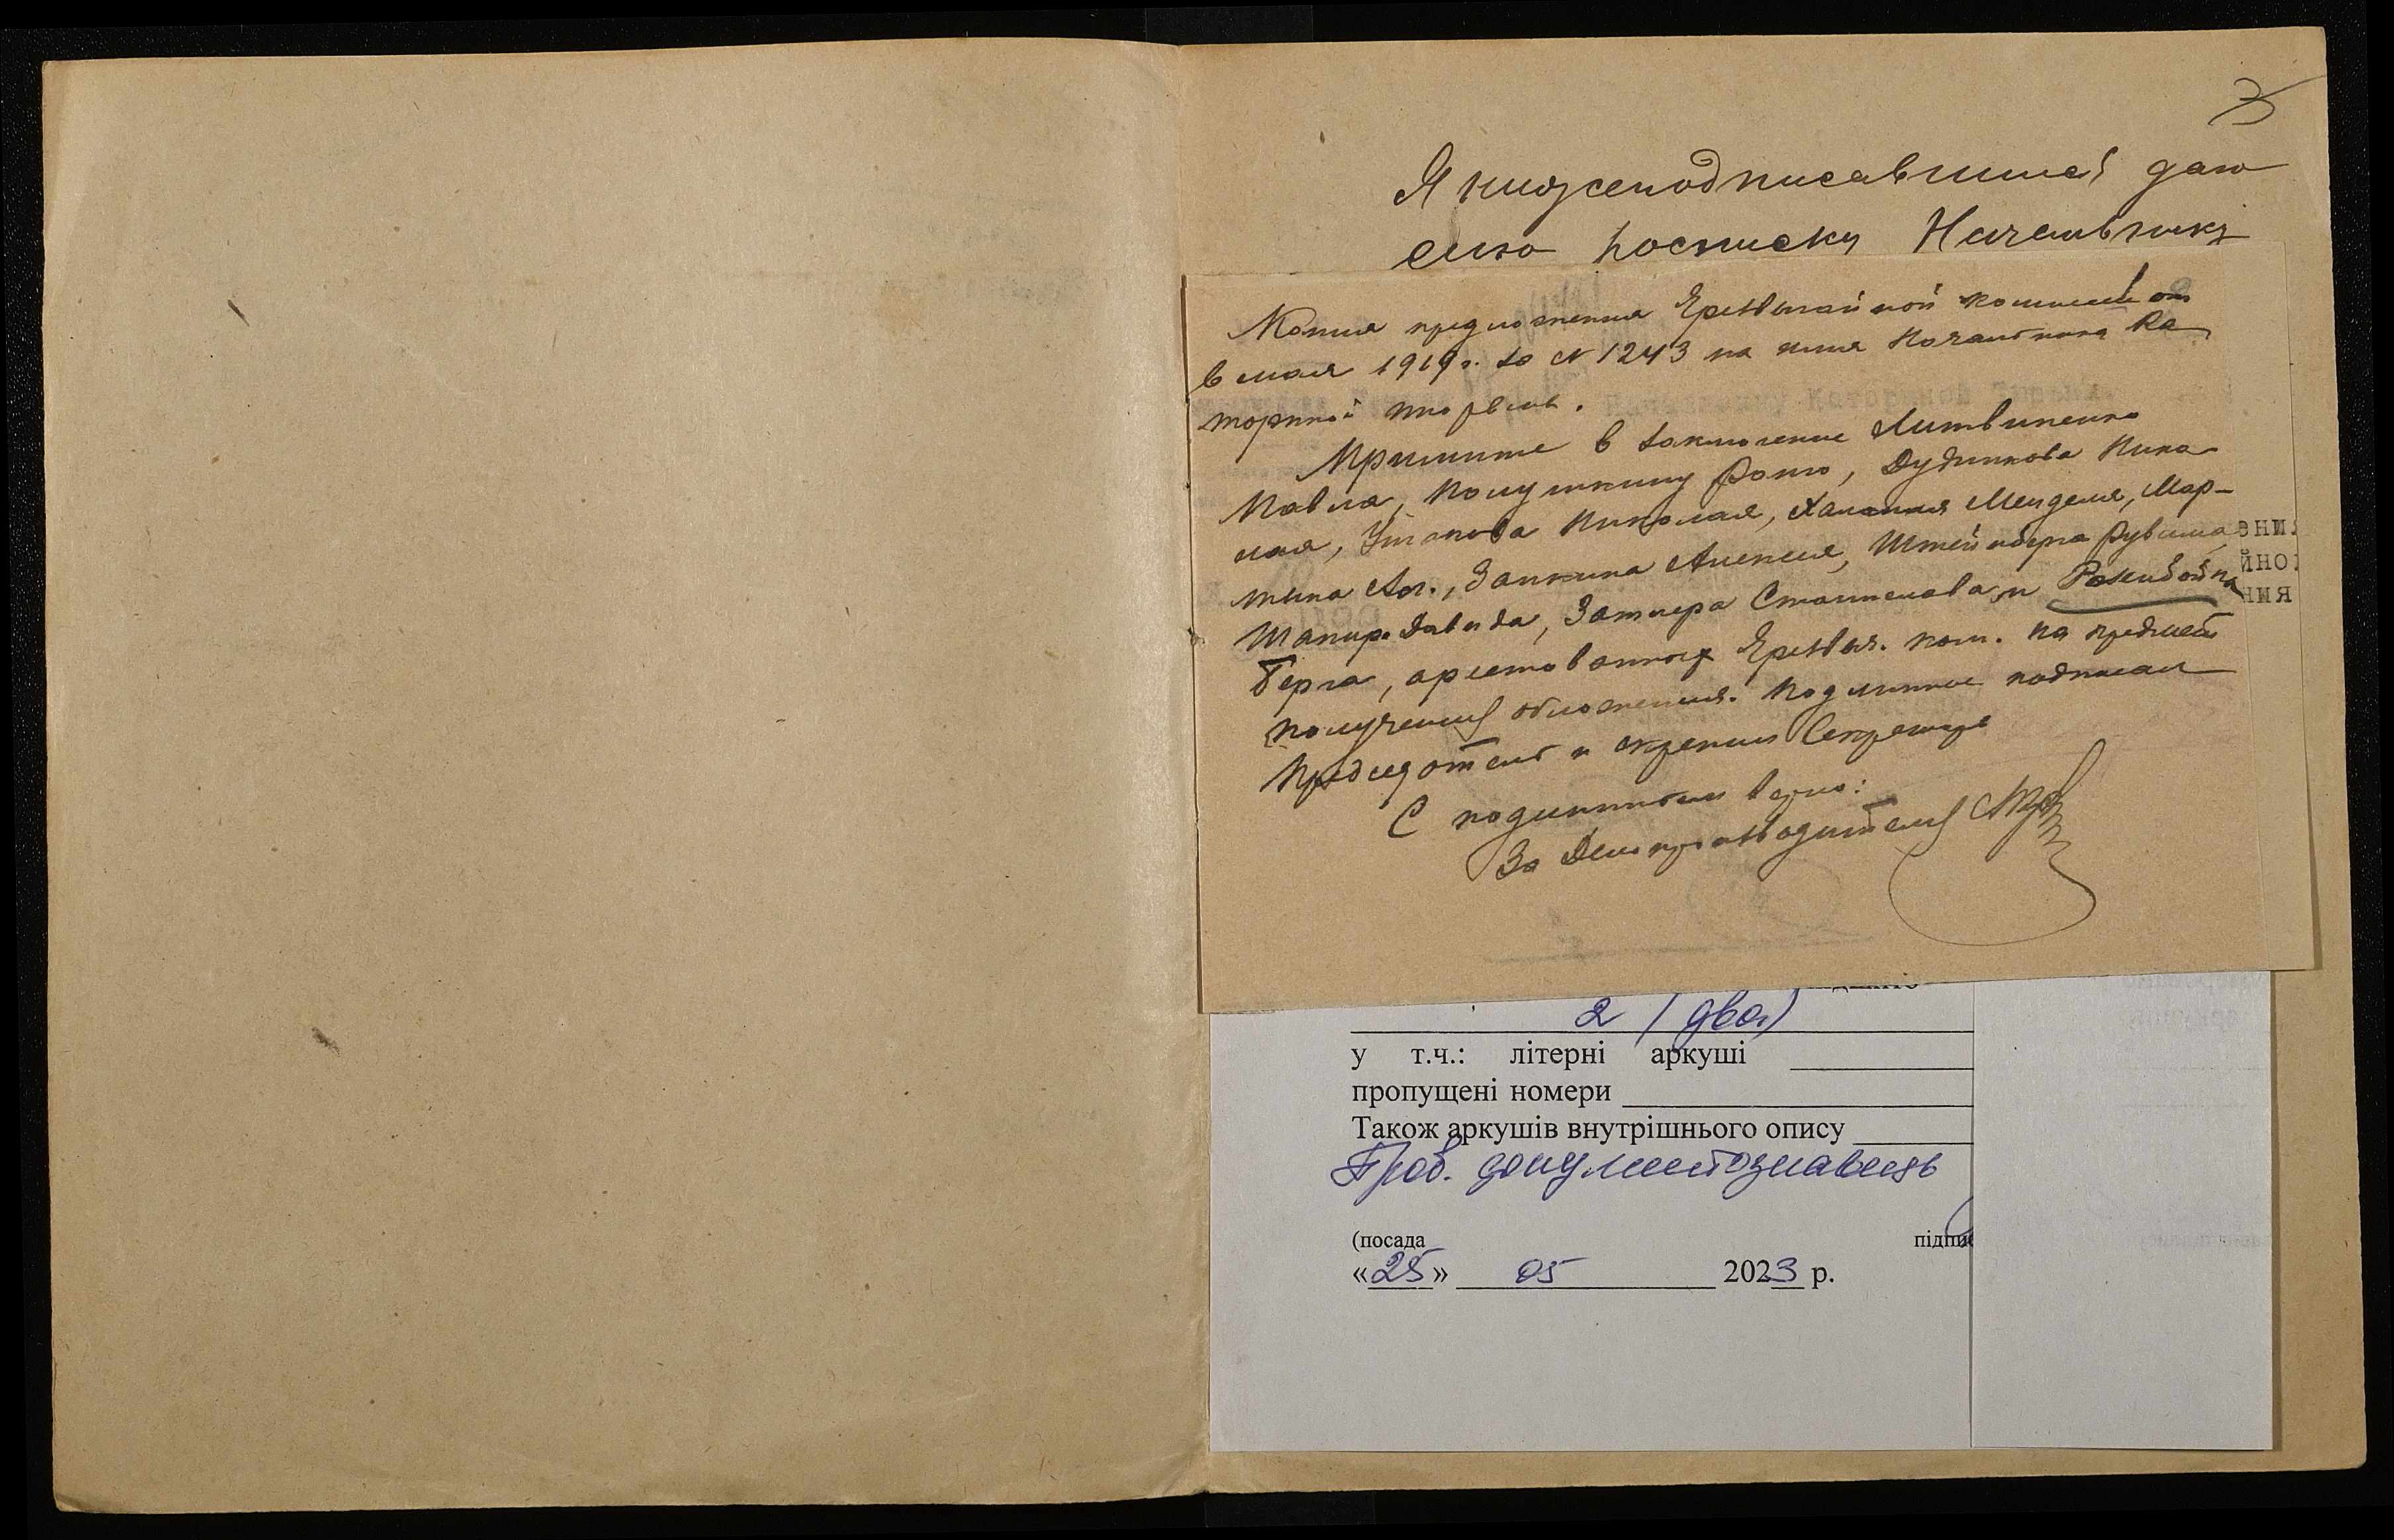 3
Я нижеподписавшийся даю
сию росписку Начальнику
Копия предложения Чрезвычайной комиссии от
6 мая 1919 г. за № 1243 на имя Начальника Ка
торжной тюрьмы.
Примите в заключение Литвиненко
Павла, Полушкину Фоню, Дудникова Нико
лая, Николая, Менделя, Мар-
тина Ал., Запкина Алексея, Штейнберга Рувима,
Шапиро Давида, Станислава и
Берга, арестованных Чрезвыч. ком. на предмет
получения обложения. Подлинное подписал
Председатель и скрепил Секретарь
С подлинным верно:
За Делопроизводителя
ЕНИЯ
ЙНО
НИЯ
2 (два)
у т.ч.: літерні аркуші
пропущені номери
Також аркушів внутрішнього опису
Пров. документознавець
(посада підпис
«25» 05 2023 р.